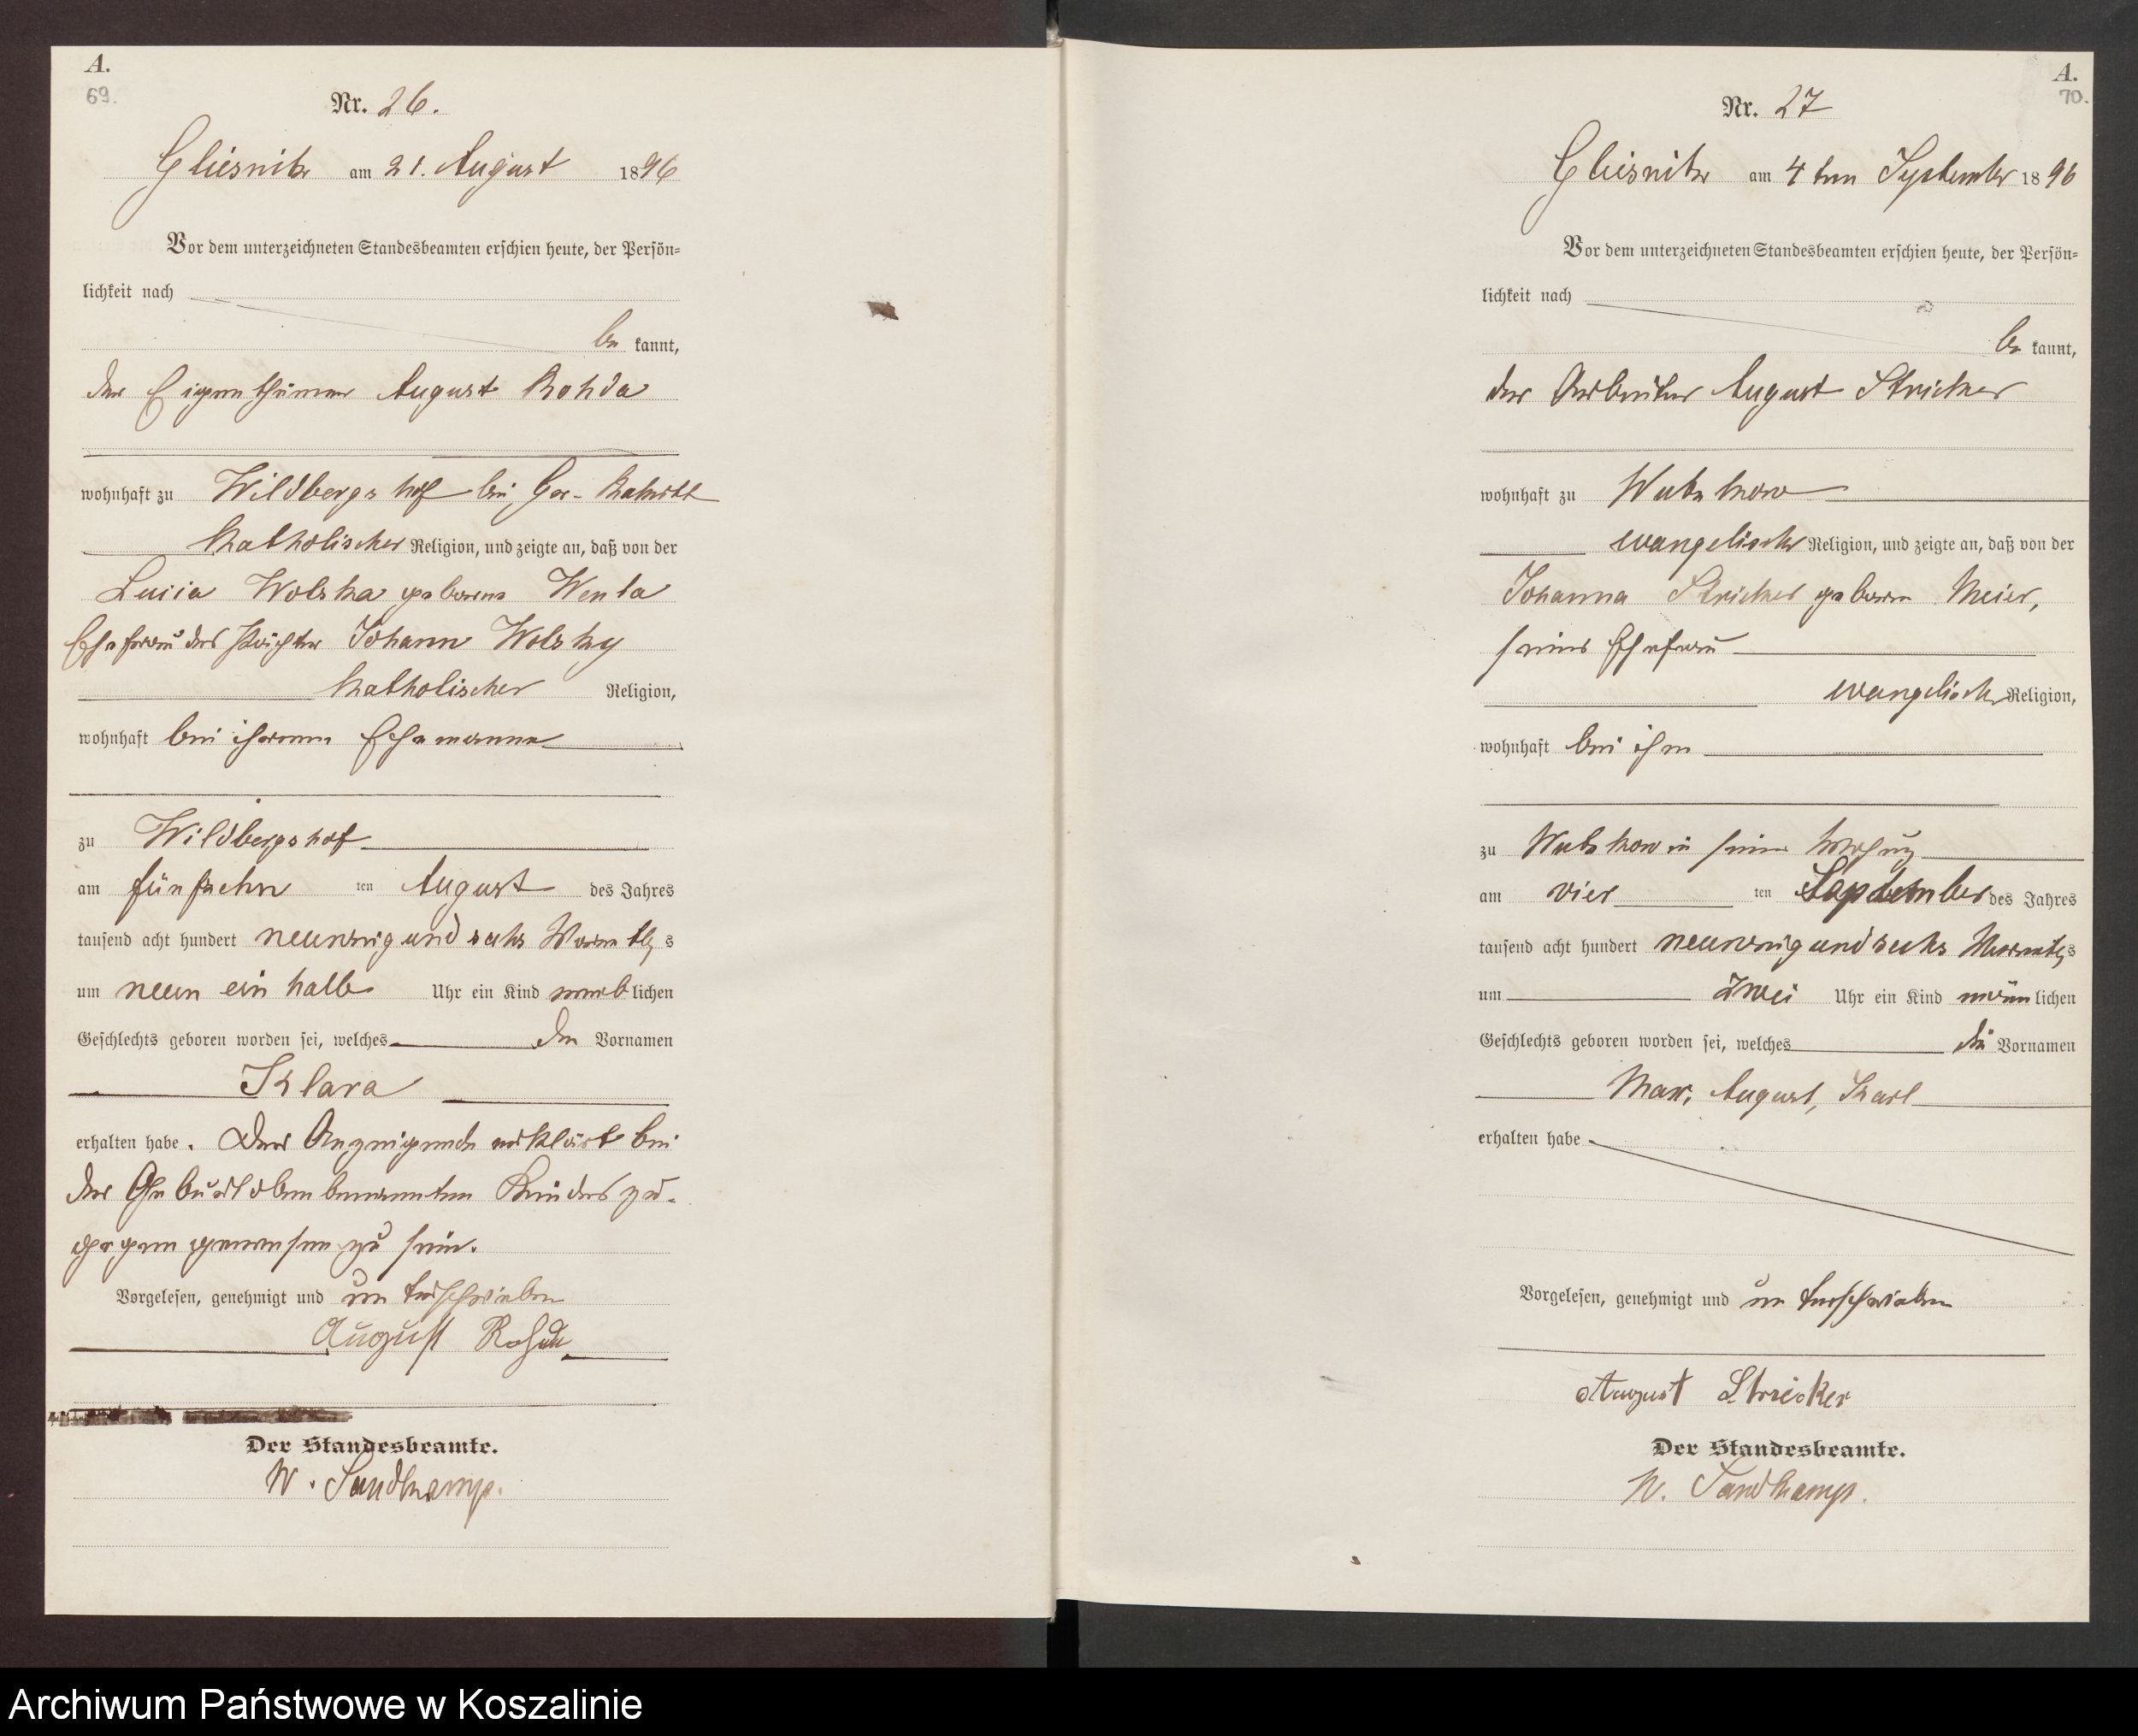 A.
69.
Nr. 26.
Gliesnitz am 21. August 1896
Vor dem unterzeichneten Standesbeamten erschien heute, der Persön=
lichkeit nach
be kannt,
der Eigenthümer August Rohda
wohnhaft zu Wildbergshof bei Gr.
katholischer Religion, und zeigte an, daß von der
Lucia Wolska geborene Wenta
Ehefrau des Pächter Johann Wolsky
katholischer Religion,
wohnhaft bei ihrem Ehemanne
zu Wildbergshof
am fünfzehn ten August des Jahres
tausend acht hundert neunzig und sechs Vormittags
um neun ein halb Uhr ein Kind weiblichen
Geschlechts geboren worden sei, welches den Vornamen
Klara
erhalten habe. Der Anzeigende erklärt bei
der Geburt oben benannten Kindes zu-
gegen gewesen zu sein.
Vorgelesen, genehmigt und unterschrieben
August Rohde
Der Standesbeamte.
W. Sandkamp.
A.
70.
Nr. 27
Gliesnitz am 4ten September 1896
Vor dem unterzeichneten Standesbeamten erschien heute, der Persön=
lichkeit nach
be kannt,
der Arbeiter August Stricker
wohnhaft zu Wutzkow
evangelischer Religion, und zeigte an, daß von der
Johanna Stricker geboren Meier,
seiner Ehefrau
evangelisch Religion,
wohnhaft bei ihm
zu Wutzkow in seiner
am vier ten September des Jahres
tausend acht hundert neunzig und sechs Vormittags
um Zwei Uhr ein Kind männlichen
Geschlechts geboren worden sei, welches die Vornamen
Max, August, Karl
erhalten habe
Vorgelesen, genehmigt und unterschrieben
August Stricker
Der Standesbeamte.
W. Sandkamp.
Archiwum Państwowe w Koszalinie